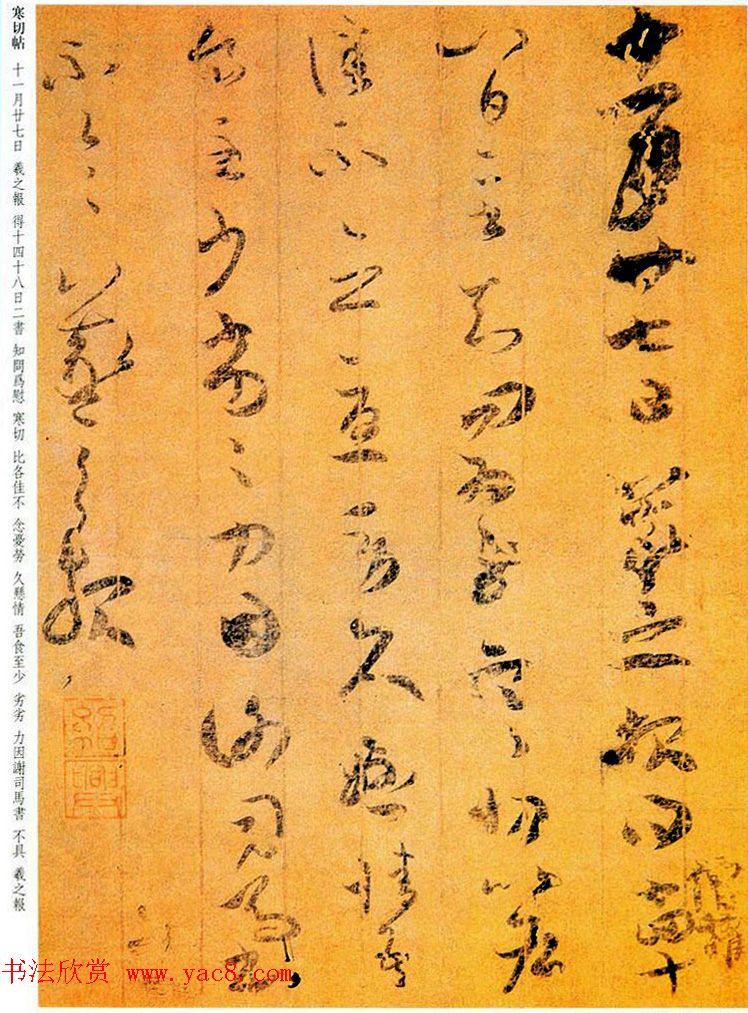 十一月廿七日羲之報得十四十
八日二書知問為慰寒切比各
佳不念憂勞久懸情吾
食至少劣劣力因謝司馬書
不具羲之報
寒切帖 十一月廿七日 羲之報 得十四十八日二書 知問爲慰 寒切 比各佳不 念憂勞 久懸情 吾食至少 劣劣 力因謝司馬書 不具 羲之報
书法欣赏 www.yac8.com